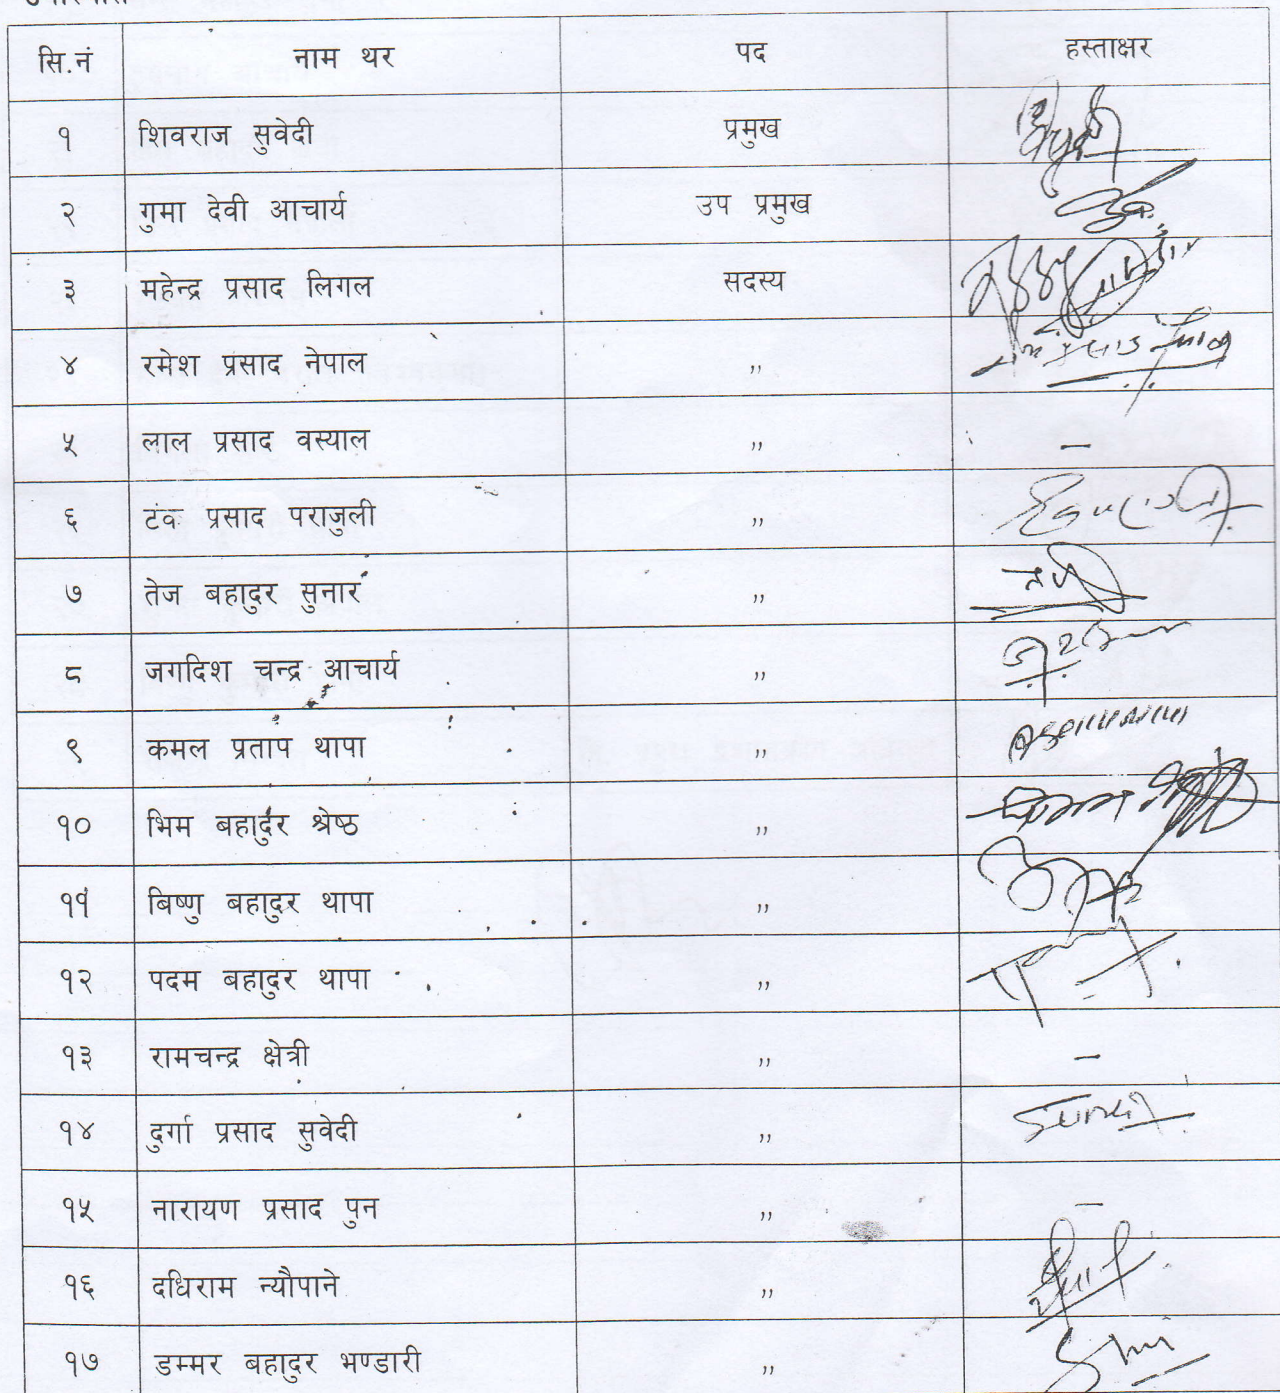 सि.नं नाम थर पद हस्ताक्षर
१ शिवराज सुवेदी प्रमुख
२ गुमा देवी आचार्य उप प्रमुख
३ महेन्द्र प्रसाद लिगल सदस्य
४ रमेश प्रसाद नेपाल ,,
५ लाल प्रसाद वस्याल ,, –
६ टंक प्रसाद पराजुली ,,
७ तेज बहादुर सुनार ,,
८ जगदिश चन्द्र आचार्य ,,
९ कमल प्रताप थापा ,,
१० भिम बहादुर श्रेष्ठ ,,
११ बिष्णु बहादुर थापा ,,
१२ पदम बहादुर थापा ,,
१३ रामचन्द्र क्षेत्री ,, –
१४ दुर्गा प्रसाद सुवेदी ,,
१५ नारायण प्रसाद पुन ,, –
१६ दधिराम न्यौपाने ,,
१७ डम्मर बहादुर भण्डारी ,,